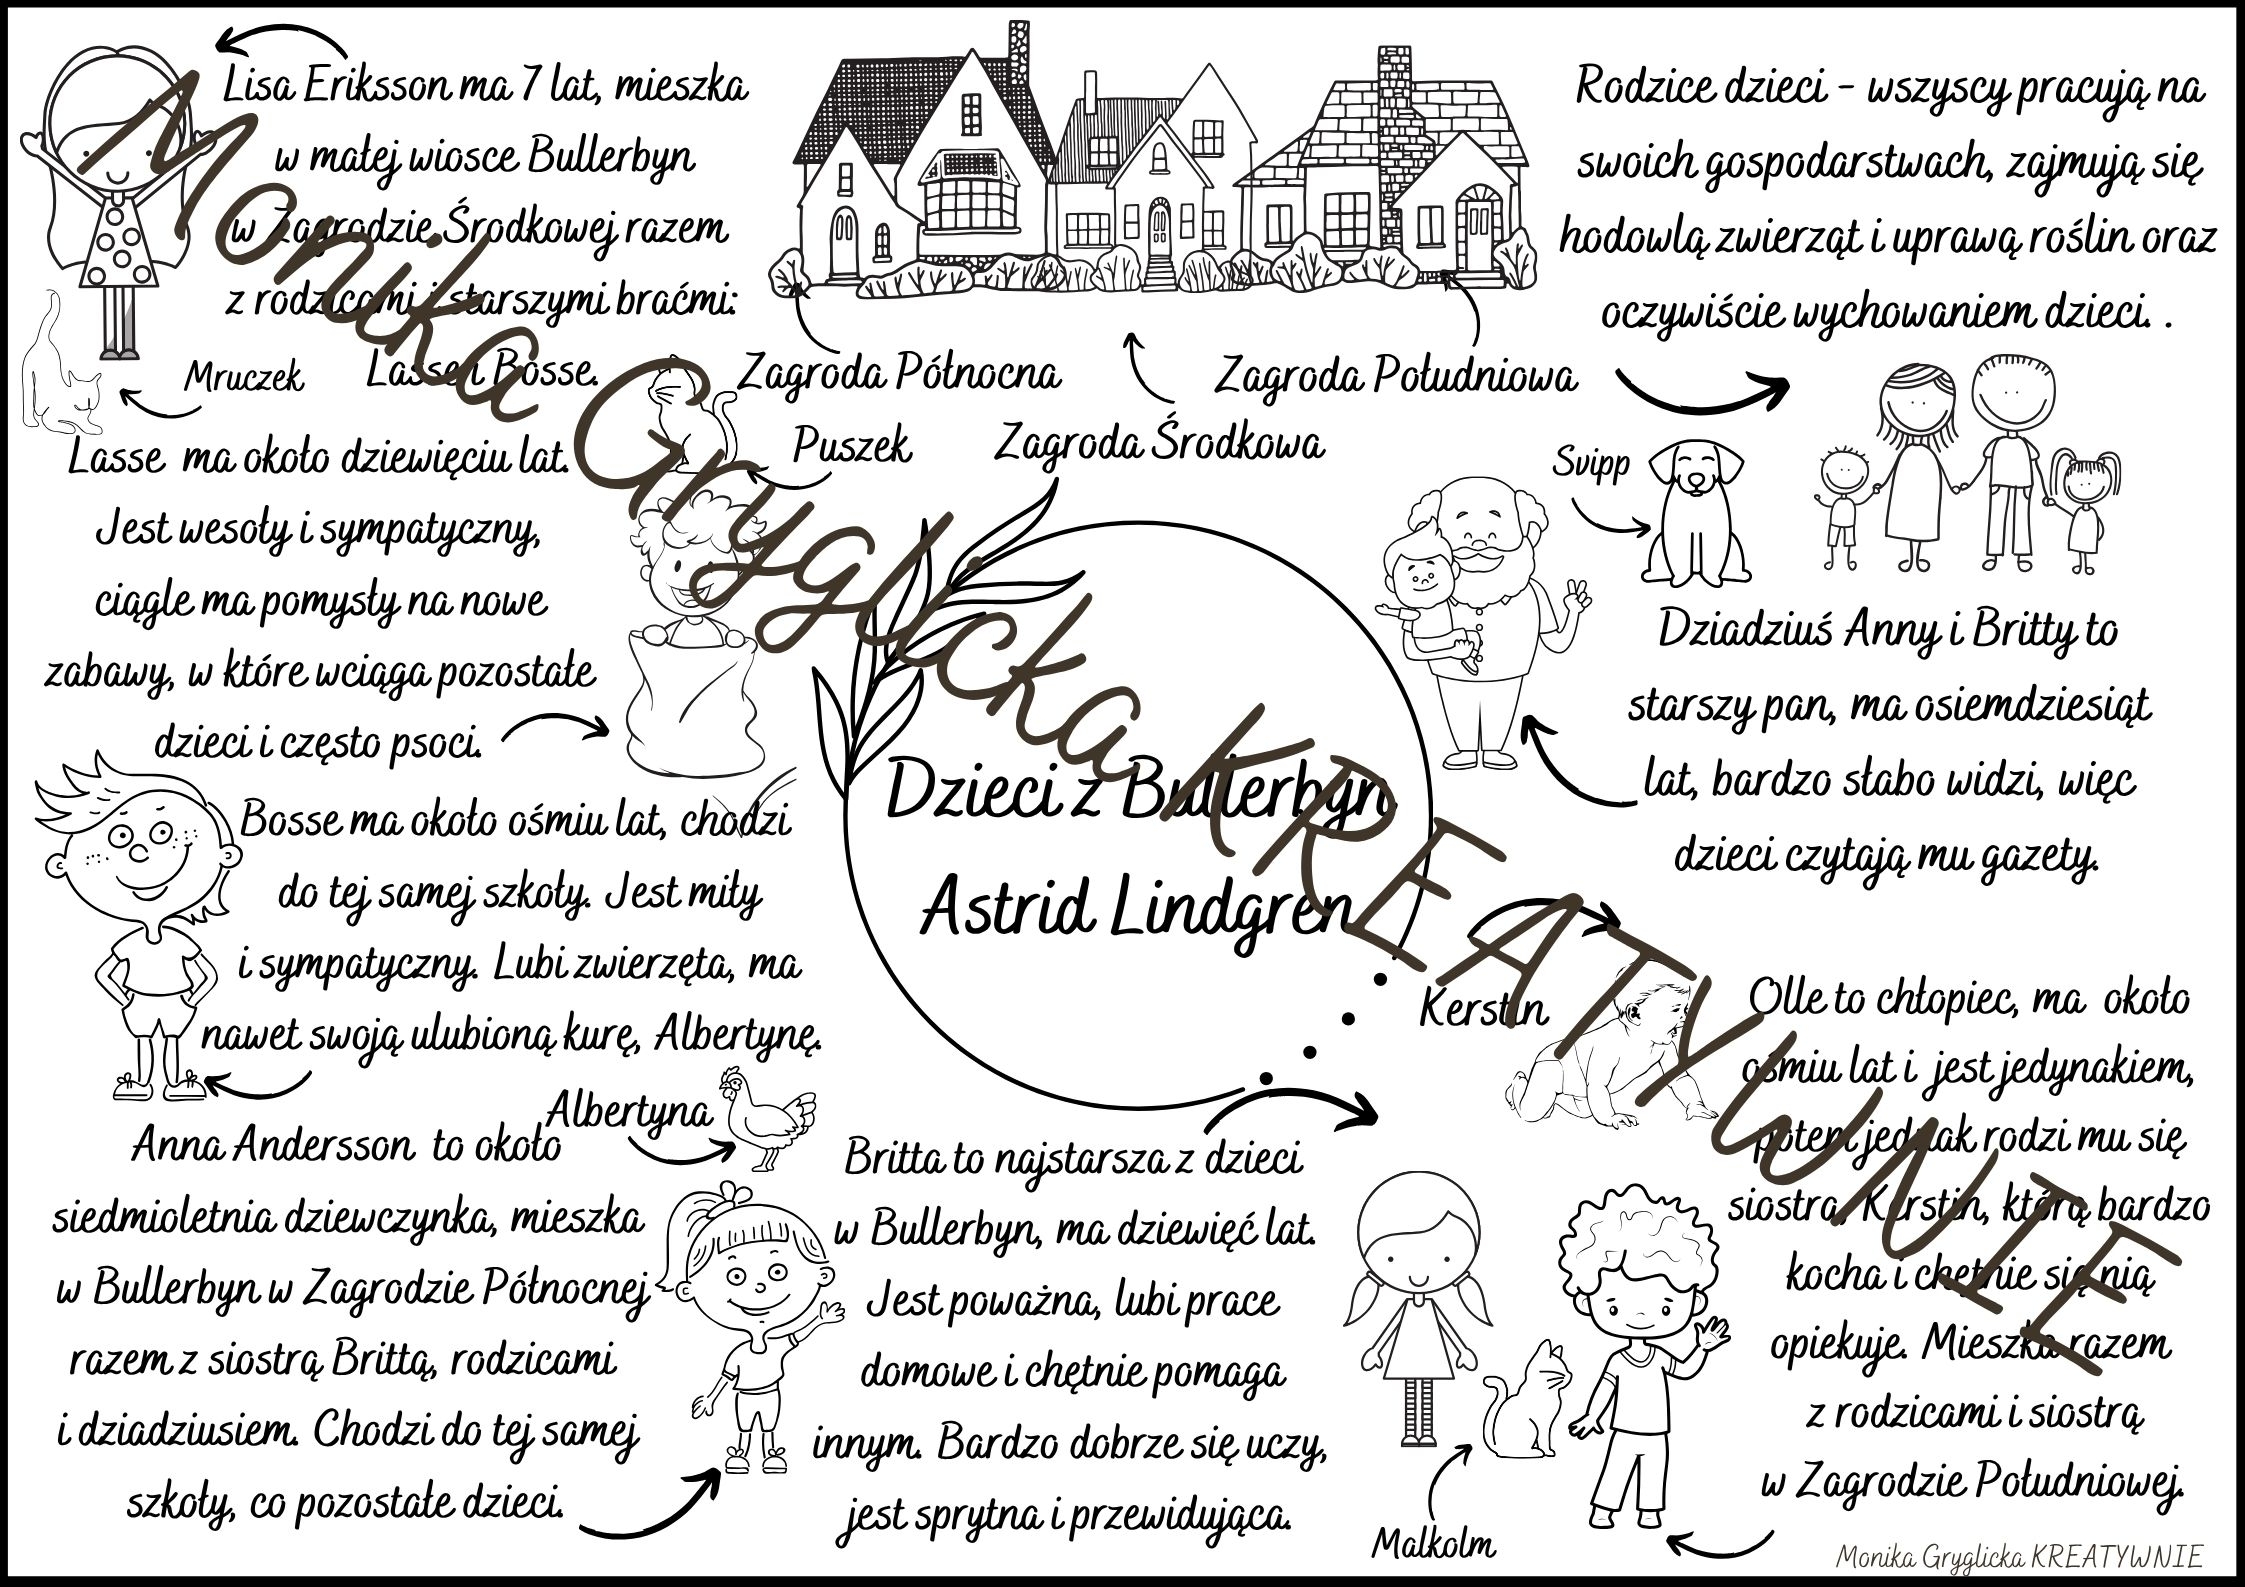 Lisa Eriksson ma 7 lat, mieszka
w małej wiosce Bullerbyn
w Zagrodzie Środkowej razem
z rodzicami i starszymi braćmi:
Lasse i Bosse.
Mruczek
Lasse ma około dziewięciu lat.
Jest wesoły i sympatyczny,
ciągle ma pomysły na nowe
zabawy, w które wciąga pozostałe
dzieci i często psoci.
Puszek
Bosse ma około ośmiu lat, chodzi
do tej samej szkoły. Jest miły
i sympatyczny. Lubi zwierzęta, ma
nawet swoją ulubioną kurę, Albertynę.
Albertyna
Anna Andersson to około
siedmioletnia dziewczynka, mieszka
w Bullerbyn w Zagrodzie Północnej
razem z siostrą Brittą, rodzicami
i dziadziusiem. Chodzi do tej samej
szkoły, co pozostałe dzieci.
Zagroda Północna
Zagroda Środkowa
Zagroda Południowa
Dzieci z Bullerbyn
Astrid Lindgren
Britta to najstarsza z dzieci
w Bullerbyn, ma dziewięć lat.
Jest poważna, lubi prace
domowe i chętnie pomaga
innym. Bardzo dobrze się uczy,
jest sprytna i przewidująca.
Malkolm
Rodzice dzieci - wszyscy pracują na
swoich gospodarstwach, zajmują się
hodowlą zwierząt i uprawą roślin oraz
oczywiście wychowaniem dzieci. .
Svipp
Dziadziuś Anny i Britty to
starszy pan, ma osiemdziesiąt
lat, bardzo słabo widzi, więc
dzieci czytają mu gazety.
Kerstin
Olle to chłopiec, ma około
ośmiu lat i jest jedynakiem,
potem jednak rodzi mu się
siostra, Kerstin, którą bardzo
kocha i chętnie się nią
opiekuje. Mieszka razem
z rodzicami i siostrą
w Zagrodzie Południowej.
Monika Gryglicka KREATYWNIE
Monika Gryglicka KREATYWNIE